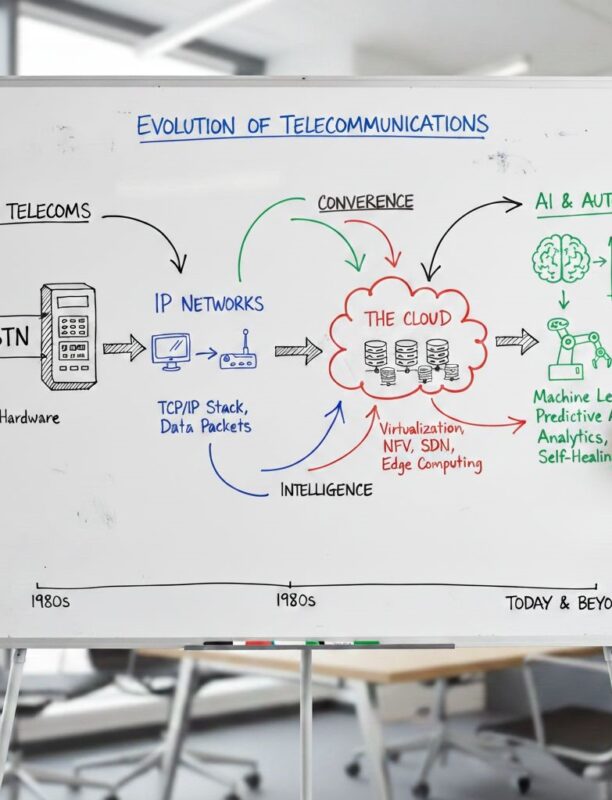 EVOLUTION OF TELECOMMUNICATIONS
TELECOMS
CONVERENCE
AI & AUT
IP NETWORKS
THE CLOUD
STN
Hardware
TCP/IP Stack,
Data Packets
Virtualization,
NFV, SDN,
Edge Computing
Machine Le
Predictive A
Analytics,
Self-Healin
INTELLIGENCE
1980s
1980s
TODAY & BEYO